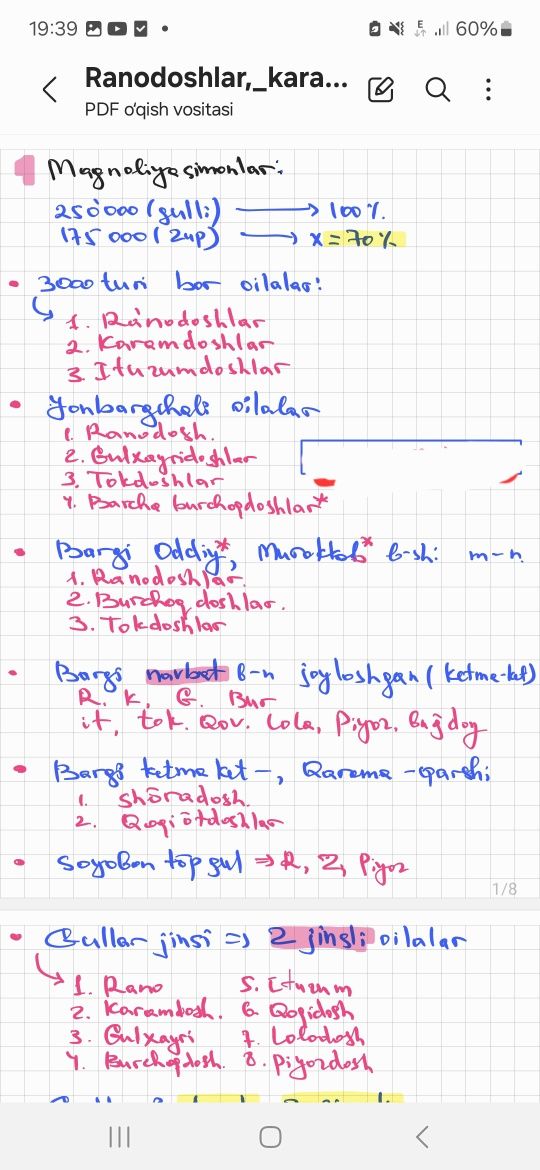 19:39
60%
Ranodoshlar,_kara...
PDF oʻqish vositasi
1 Magnoliyasimonlar:
250'000 (gulli) → 100%.
175 000 (2up) → x = 70%
• 3000 turi bor oilalar:
1. Ra'nodoshlar
2. Karamdoshlar
3. Ituzumdoshlar
• Yonbargchali oilalar
1. Ranodosh.
2. Gulxayridoshlar
3. Tokdoshlar
4. Barcha burchoqdoshlar*
• Bargi Oddiy*, Murakkab* b-shi m-n
1. Ranodoshlar.
2. Burchoqdoshlar.
3. Tokdoshlar
• Bargi navbat b-n joyloshgan (ketma-ket)
R. K, G. Bur
it, tok. Qov. Lola, Piyoz, Bug'doy
• Bargi ketma ket -, Qarama-qarshi
1. Shōradosh.
2. Qoqiōtdoshlar
• Soyobon tōpgul ⇒ R, Z, Piyoz
1/8
• Gullar jinsi ⇒ 2 jinsli oilalar
1. Rano 5. Ituzum
2. Karamdosh. 6. Qoqidosh
3. Gulxayri 7. Loladosh
4. Burchoqdosh. 8. Piyozdosh